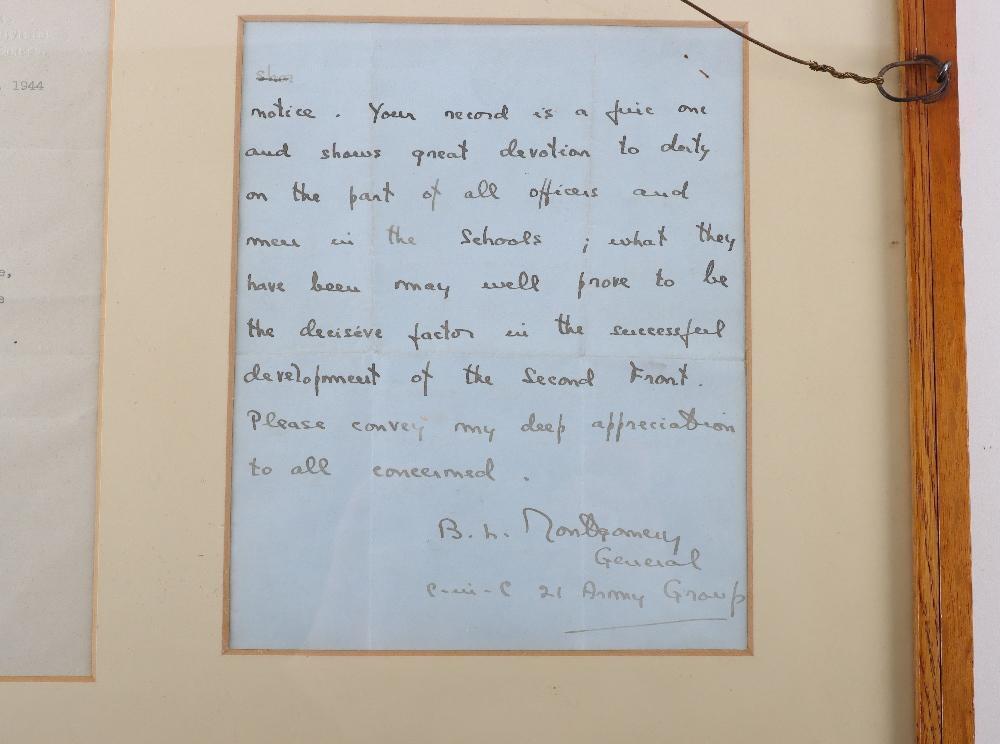 1944
notice. Your record is a fine one
and shows great devotion to duty
on the part of all officers and
men in the Schools; what they
have been may well prove to be
the decisive factor in the successful
development of the Second Front.
Please convey my deep appreciation
to all concerned.
B. L. Montgomery
General
C-in-C 21 Army Group